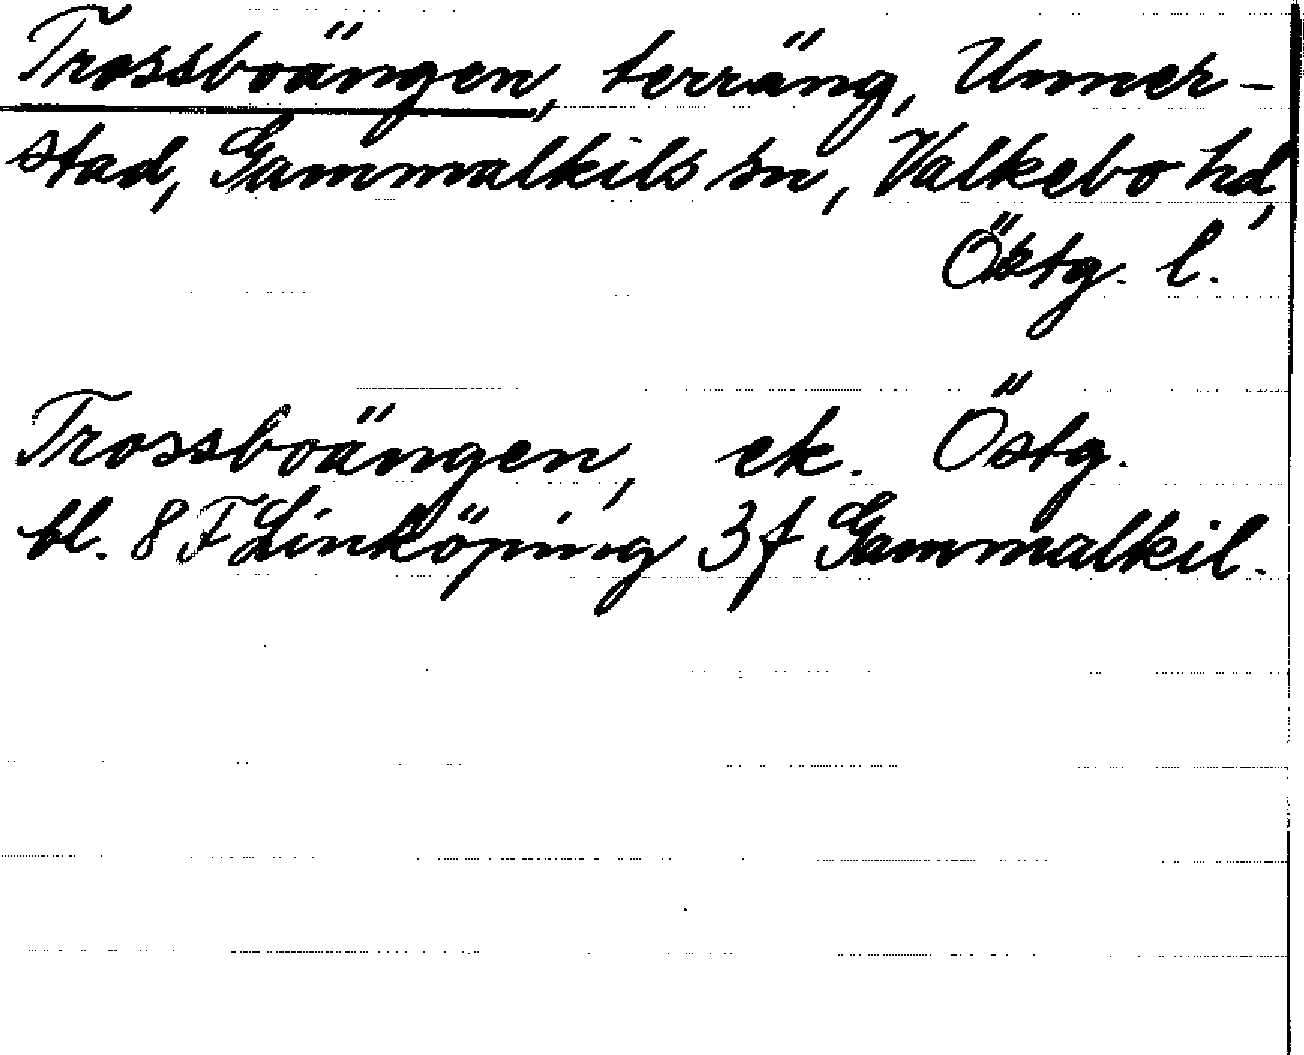 Trossboängen, terräng, Unner-
stad, Gammalkils sn, Valkebo hd,
Östg. l.
Trossboängen, ek. Östg.
bl. 8 F Linköping 3 f Gammalkil.